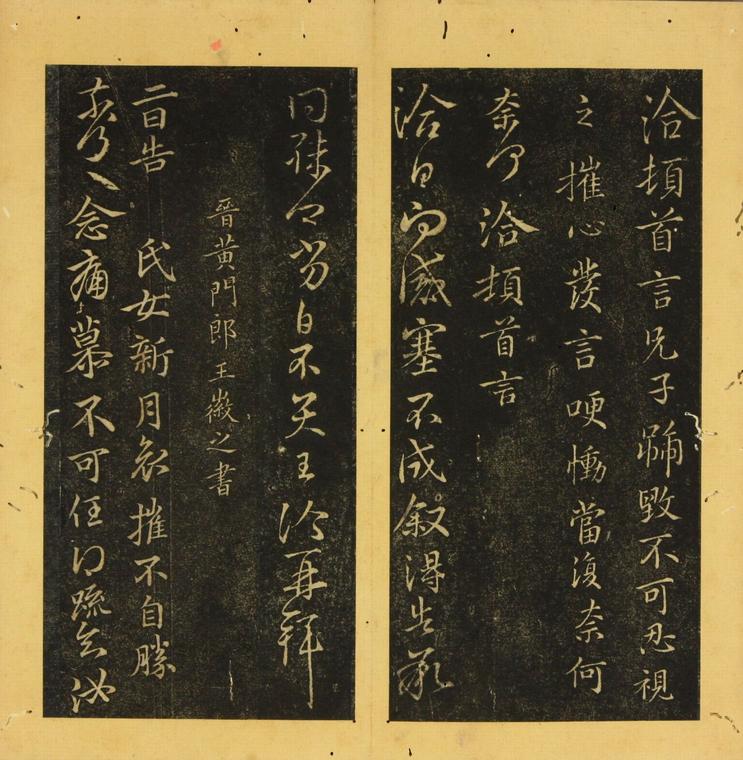 洽頓首言兄子號毀不可忍視
之摧心發言哽慟當復奈何
奈何洽頓首言
洽白不感塞不成叙得告承
問慰吾不王洽再拜
晉黃門郎王徽之書
二日告氏女新月哀摧不自勝
奈何奈何念痛慕不可任得疏知汝